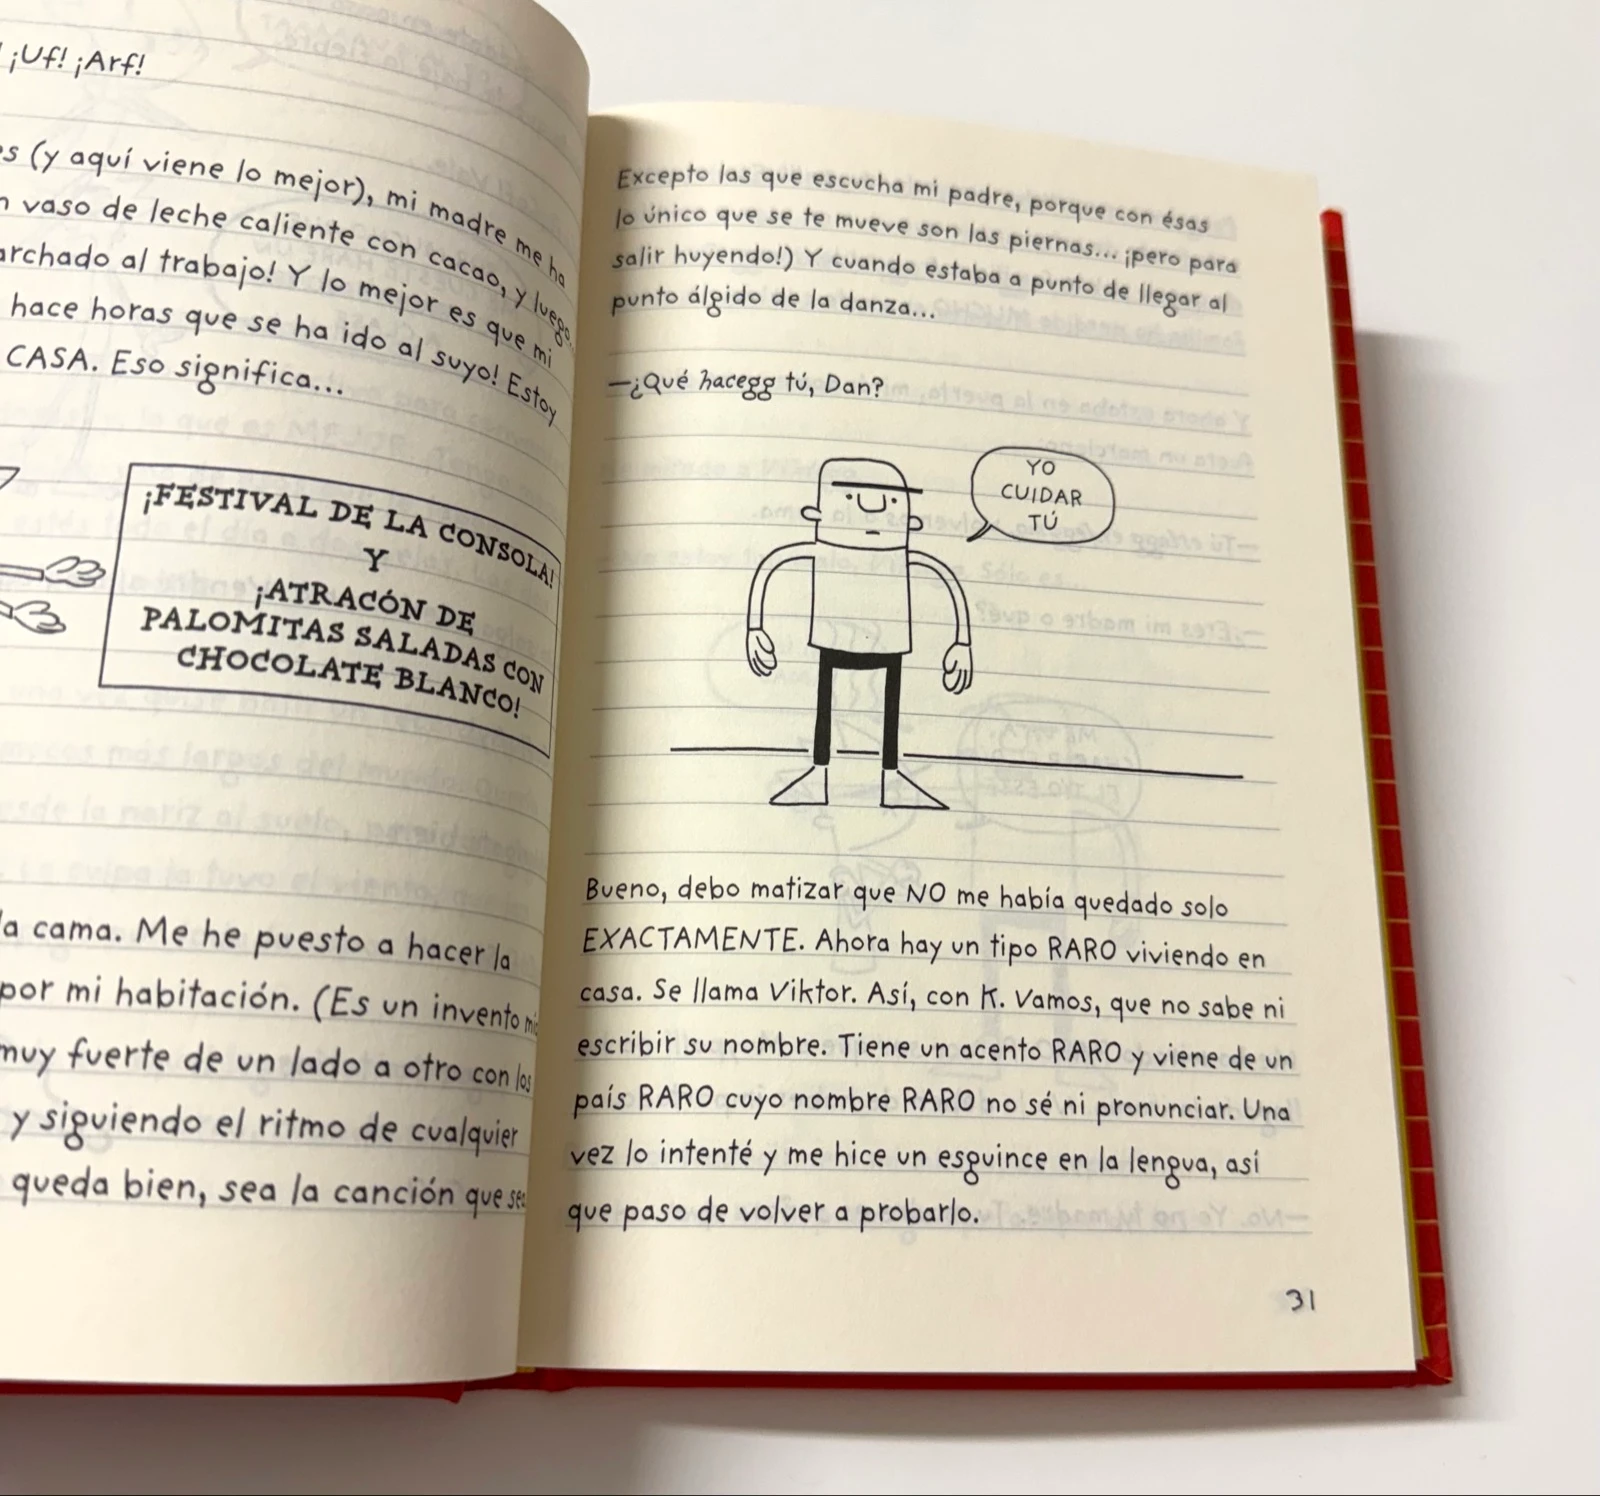 ¡Uf! ¡Arf!
(y aquí viene lo mejor), mi madre me ha
vaso de leche caliente con cacao, y luego
al trabajo! Y lo mejor es que mi
hace horas que se ha ido al suyo! Estoy
CASA. Eso significa...
¡FESTIVAL DE LA CONSOLA!
Y
¡ATRACÓN DE
PALOMITAS SALADAS CON
CHOCOLATE BLANCO!
la cama. Me he puesto a hacer la
por mi habitación. (Es un invento
muy fuerte de un lado a otro con los
y siguiendo el ritmo de cualquier
queda bien, sea la canción que
Excepto las que escucha mi padre, porque con ésas
lo único que se te mueve son las piernas... ¡pero para
salir huyendo!) Y cuando estaba a punto de llegar al
punto álgido de la danza...
—¿Qué hacegg tú, Dan?
YO
CUIDAR
TÚ
Bueno, debo matizar que NO me había quedado solo
EXACTAMENTE. Ahora hay un tipo RARO viviendo en
casa. Se llama Viktor. Así, con K. Vamos, que no sabe ni
escribir su nombre. Tiene un acento RARO y viene de un
país RARO cuyo nombre RARO no sé ni pronunciar. Una
vez lo intenté y me hice un esguince en la lengua, así
que paso de volver a probarlo.
31